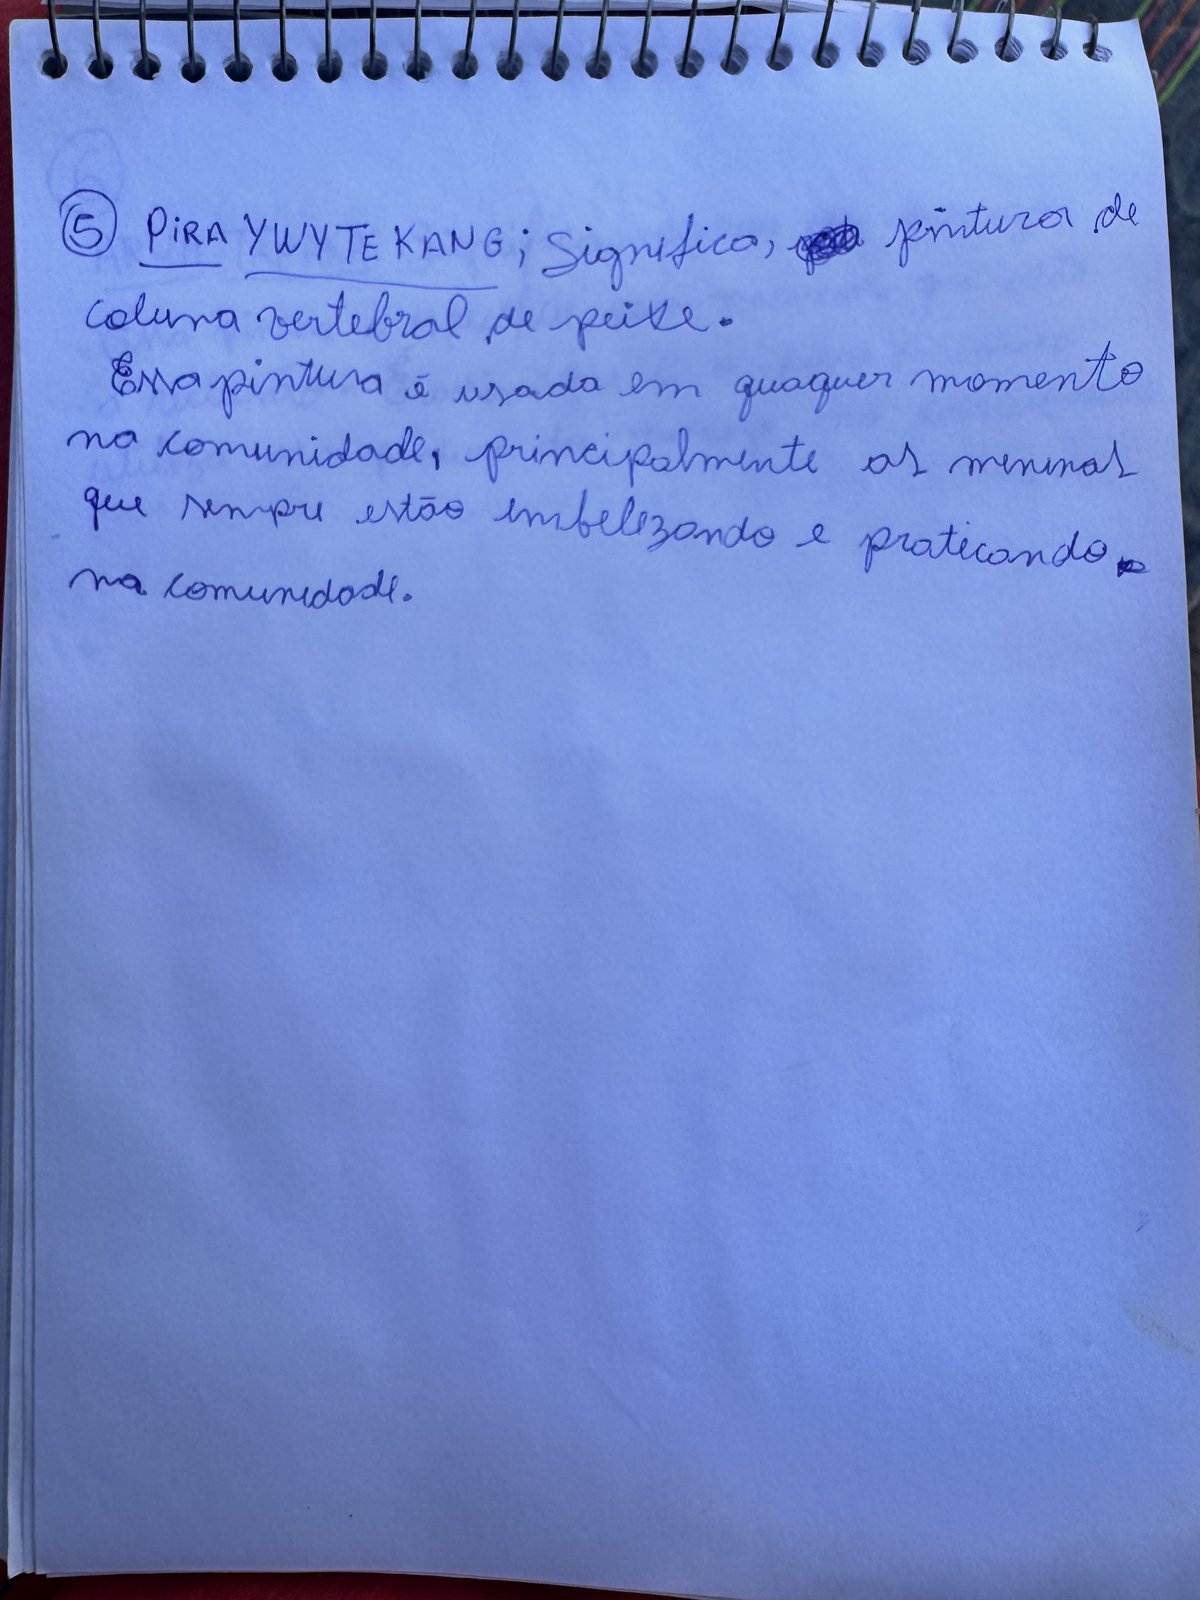 5 PiRA YWYTEKANG; Significa, pintura de
coluna vertebral de peixe.
Essa pintura é usada em quaquer momento
na comunidade, principalmente as meninas
que sempre estão embelezando e praticando
na comunidade.